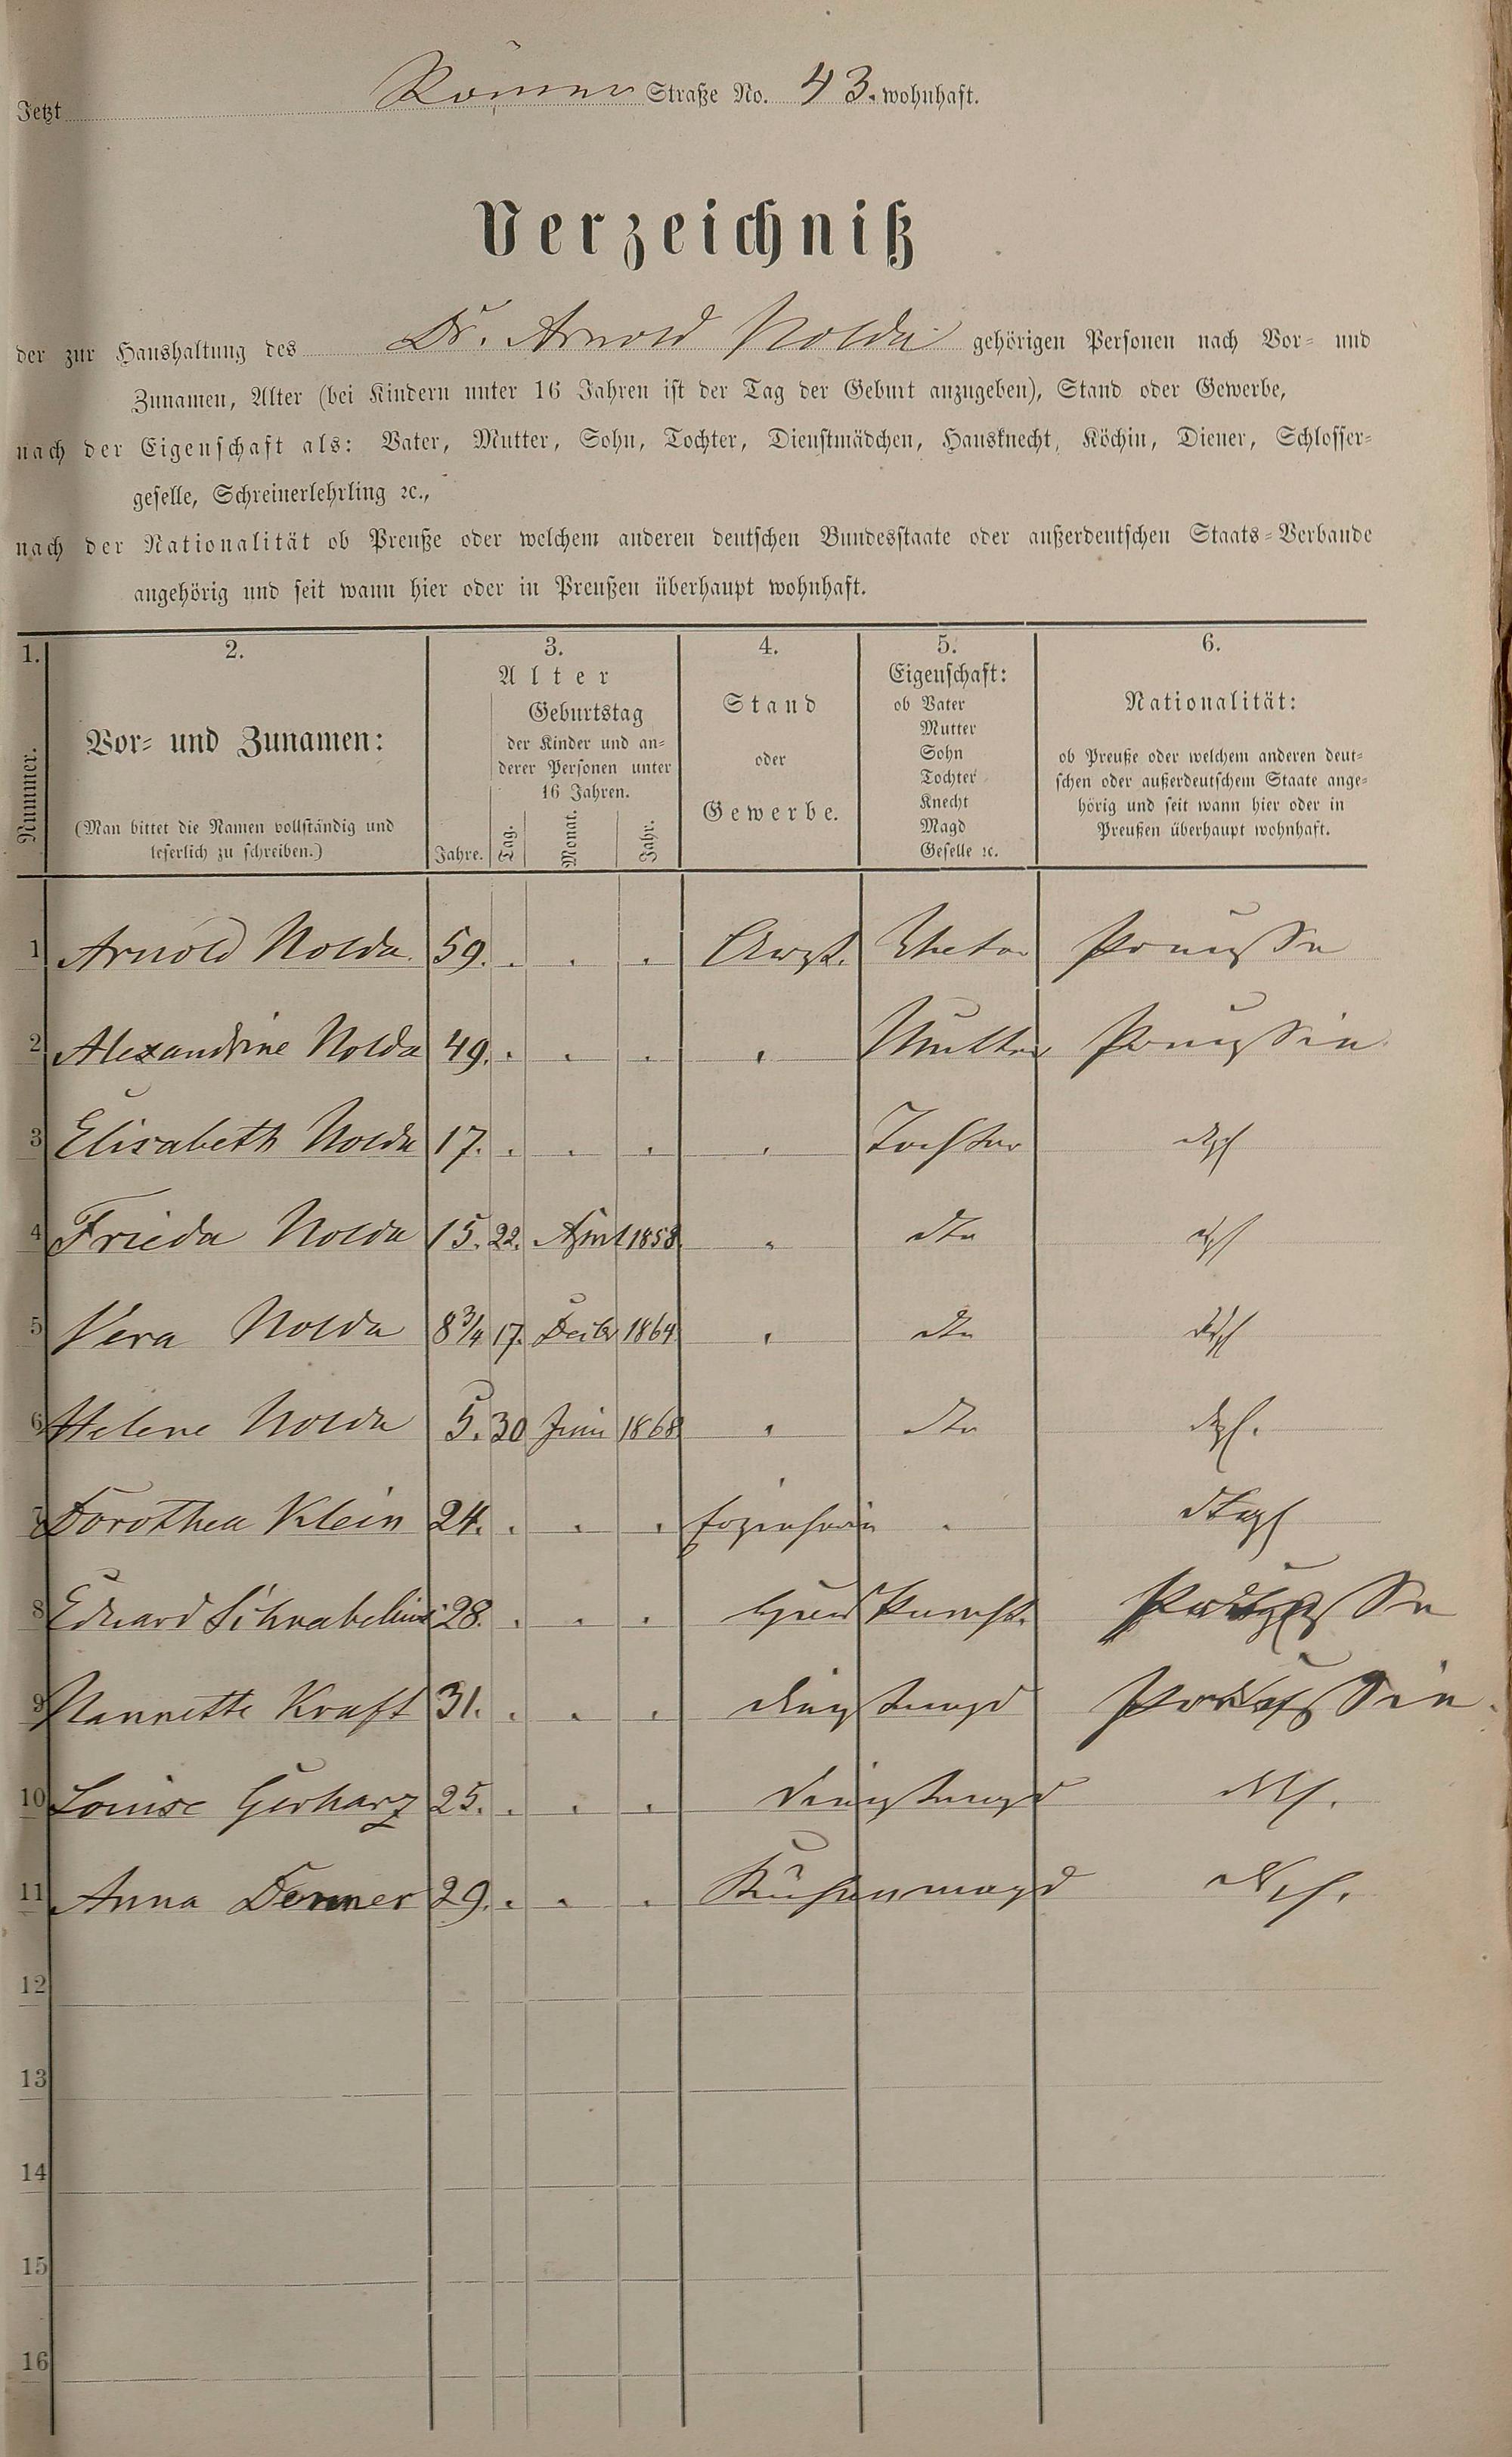 Jetzt Römer Straße No. 43. wohnhaft.
Verzeichniß
der zur Haushaltung des Dr. Arnold Nolda gehörigen Personen nach Vor- und
Zunamen, Alter (bei Kindern unter 16 Jahren ist der Tag der Geburt anzugeben), Stand oder Gewerbe,
nach der Eigenschaft als: Vater, Mutter, Sohn, Tochter, Dienstmädchen, Hausknecht, Köchin, Diener, Schlosser-
geselle, Schreinerlehrling ꝛc.,
nach der Nationalität ob Preuße oder welchem anderen deutschen Bundesstaate oder außerdeutschen Staats-Verbande
angehörig und seit wann hier oder in Preußen überhaupt wohnhaft.
1. 2. 3. 4. 5. 6.
Nummer.
Vor- und Zunamen:
(Man bittet die Namen vollständig und
leserlich zu schreiben.)
Alter
Geburtstag
der Kinder und an-
derer Personen unter
16 Jahren.
Jahre. Tag. Monat. Jahr.
Stand
oder
Gewerbe.
Eigenschaft:
ob Vater
Mutter
Sohn
Tochter
Knecht
Magd
Geselle ꝛc.
Nationalität:
ob Preuße oder welchem anderen deut-
schen oder außerdeutschem Staate ange-
hörig und seit wann hier oder in
Preußen überhaupt wohnhaft.
1 Arnold Nolda. 59. . . . Arzt. Vater Preusse
2 Alexandrine Nolda 49. . . . . Mutter Preussin
3 Elisabeth Nolda 17. . . . . Tochter
4 Frieda Nolda 15. 22. April 1858. " dto
5 Vera Nolda 8 3/4 17. Decbr 1864 " dto
6 Helene Nolda 5. 30 Juni 1868 " dto
7 Dorothea Klein 24. . . . Erzieherin .
8 Eduard Schnabelius 28. . . . Hausknecht. Preusse
9 Nannette Kraft 31. . . . Dienstmagd Preussin.
10 Louise Gerharz 25. . . . Dienstmagd
11 Anna Denner 29. . . . Küchenmagd
12
13
14
15
16